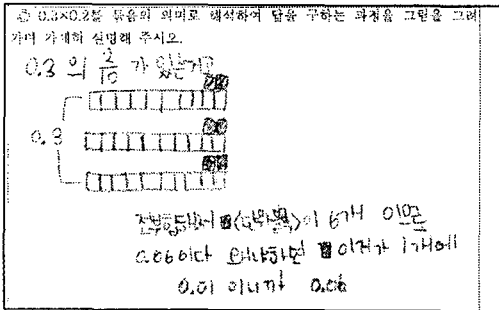 0.3×0.2를 묶음의 의미로 해석하여 답을 구하는 과정을 그림을 그려
가며 자세히 설명해 주시오.
0.3 의 2/10 가 있는거고
0.3
전부합해서 ■ 이 6개 이므로
0.06이다 왜냐하면 ■ 이거가 1개에
0.01 이니까 0.06